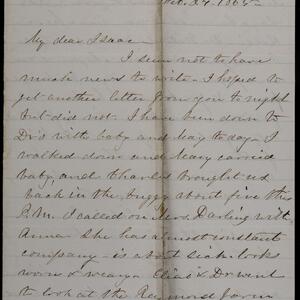 Feb. 24. 1865-
My dear Isaac-
I seem not to have
much news to write. I hoped to
get another letter from you to night
but did not. I have been down to
Dr's with baby and May to day. I
walked down and Mary carried
baby, and Charles brought us
back in the buggy about five this
P.M. I called on Mrs. Darling with
Anna. She has almost constant
company- is about sick- looks
worn & weary.
& Dr went
to look at the farm